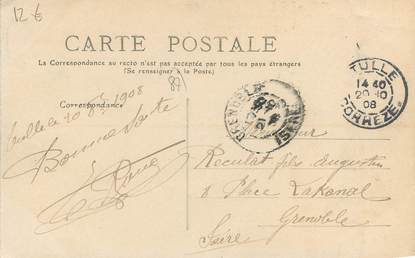 12 €
CARTE POSTALE
La Correspondance au recto n'est pas acceptée par tous les pays étrangers
(Se renseigner à la Poste)
(87)
Correspondance
TULLE
14 40
20-10
08
CORREZE
GRENOBLE
ISERE
Tulle le 20 8bre 1908
Bonne santé
Monsieur
Reculat fils Augustin
8 Place Lakanal
Grenoble
Isère